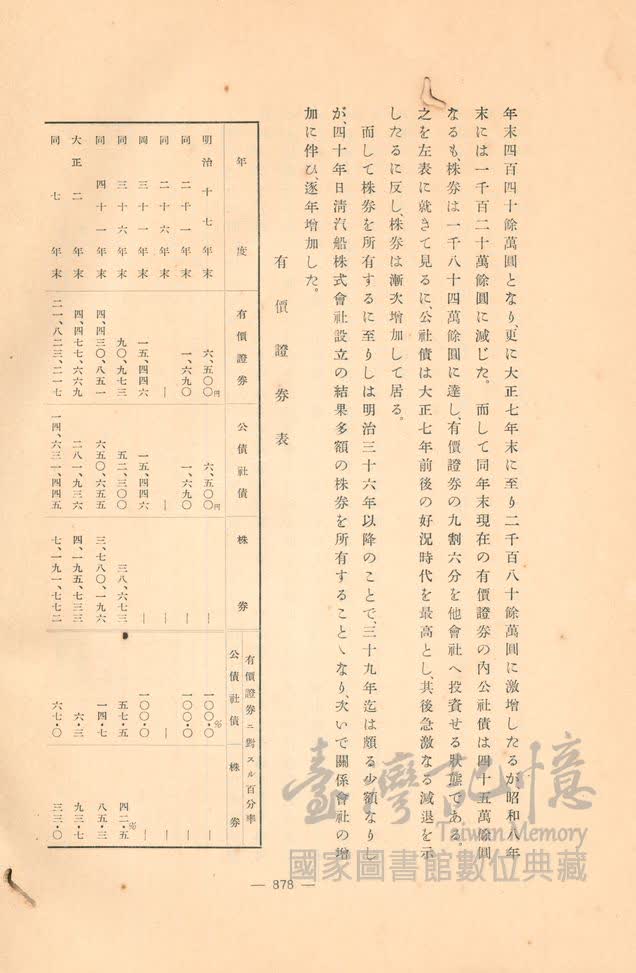 年末四百四十餘萬圓となり、更に大正七年末に至り二千百八十餘萬圓に激增したるが昭和八年
末には一千百二十萬餘圓に減じた。而して同年末現在の有價證券の內公社債は四十五萬餘圓
なるも、株券は一千八十四萬餘圓に達し、有價證券の九割六分を他會社へ投資せる狀態である。
之を左表に就きて見るに、公社債は大正七年前後の好況時代を最高とし、其後急激なる減退を示
したるに反し、株券は漸次增加して居る。
而して株券を所有するに至りしは明治三十六年以降のことで、三十九年迄は頗る少額なりし
が、四十年日淸汽船株式會社設立の結果多額の株券を所有することゝなり、次いで關係會社の增
加に伴ひ、逐年增加した。
有價證券表
年度 有價證券 公債社債 株券 有價證券ニ對スル百分率 公債社債 株券
明治十七年末 六、五〇〇円 六、五〇〇円 — 一〇〇・〇% —
同二十一年末 一、六九〇 一、六九〇 — 一〇〇・〇 —
同二十六年末 — — — — —
同三十一年末 一五、四四六 一五、四四六 — 一〇〇・〇 —
同三十六年末 九〇、九七三 五二、三〇〇 三八、六七三 五七・五 四二・五%
同四十一年末 四、四三〇、八五一 六五〇、六五五 三、七八〇、一九六 一四・七 八五・三
大正二年末 四、四七七、六六九 二八一、九三六 四、一九五、七三三 六・三 九三・七
同七年末 二一、八二三、二一七 一四、六三一、四四五 七、一九一、七七二 六七・〇 三三・〇
— 878 —
臺灣記憶
Taiwan Memory
國家圖書館數位典藏